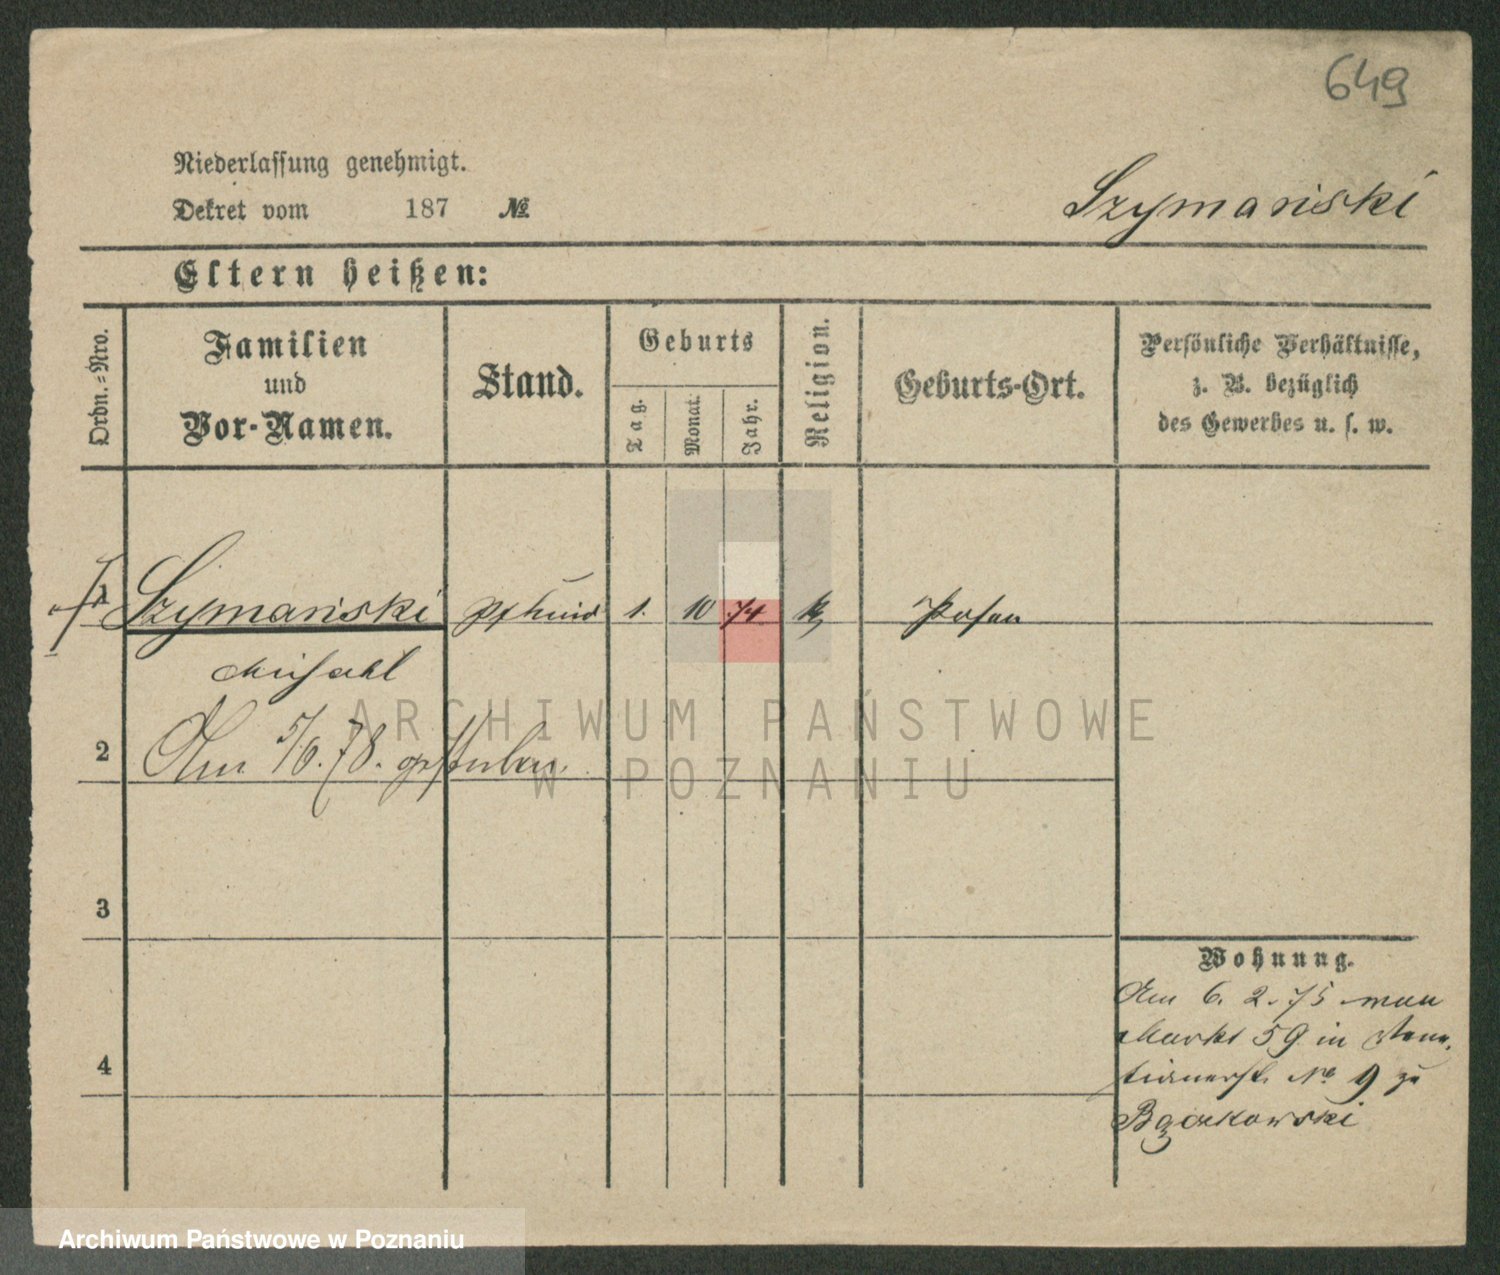 649
Niederlassung genehmigt.
Dekret vom 187 №
Szymański
Eltern heißen:
Ordn.=Nro.
Familien
und
Vor-Namen.
Stand.
Geburts
Tag.
Monat.
Jahr.
Religion.
Geburts-Ort.
Persönliche Verhältnisse,
z. B. bezüglich
des Gewerbes u. s. w.
1 Szymański 1. 10 74 k Posen
Michael
2 Am 5/6. 78. gestorben.
3
4
Wohnung.
Am 6. 2. 75 von
Markt 59 in
No 9 zu
Bączkowski
ARCHIWUM PAŃSTWOWE
W POZNANIU
Archiwum Państwowe w Poznaniu